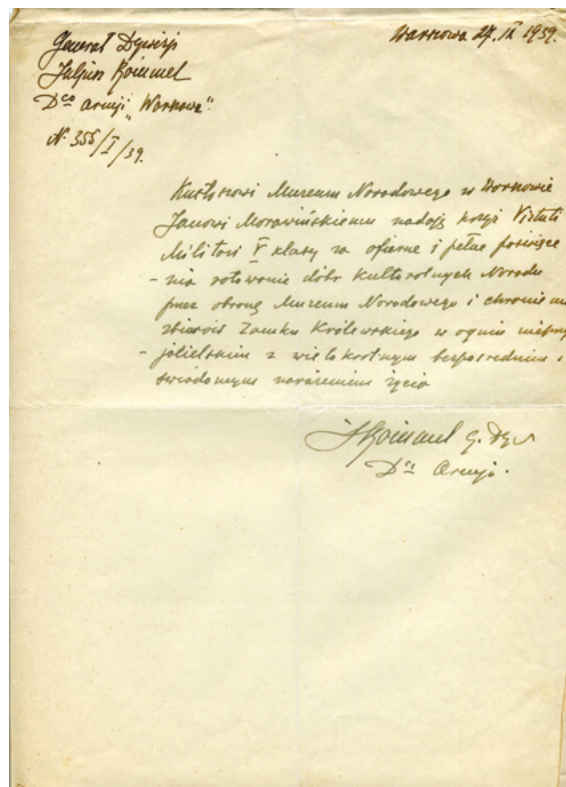 Generał Dywizji
Juljusz Rómmel
Dca Armji „Warszawa”.
N. 355/I/39.
Warszawa 27.IX 1939.
Kustoszowi Muzeum Narodowego w Warszawie
Janowi Morawińskiemu nadaję krzyż Virtuti
Militari V klasy za ofiarne i pełne poświęce
- nia ratowanie dóbr kulturalnych Narodu
przez obronę Muzeum Narodowego i chronienie
zbiorów Zamku Królewskiego w ogniu nieprzy
- jacielskim z wielokrotnym bezpośrednim i
świadomym narażeniem życia
JRómmel G. Dyw
Dca Armji.